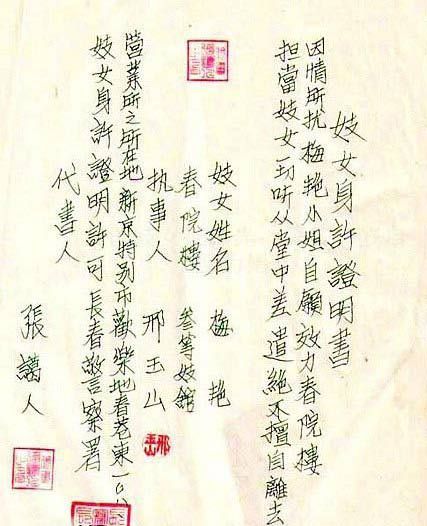 妓女身許證明書
因情所扰梅艳小姐自願效力春院樓
担當妓女一切听从堂中差遣絕不擅自離去
妓女姓名 梅 艳
春院樓 叁等妓舘
执事人 邢玉山
營業所之所在地新京特别市歡樂地春巷東一〇
妓女身許證明許可長春警察署
代書人 張 人